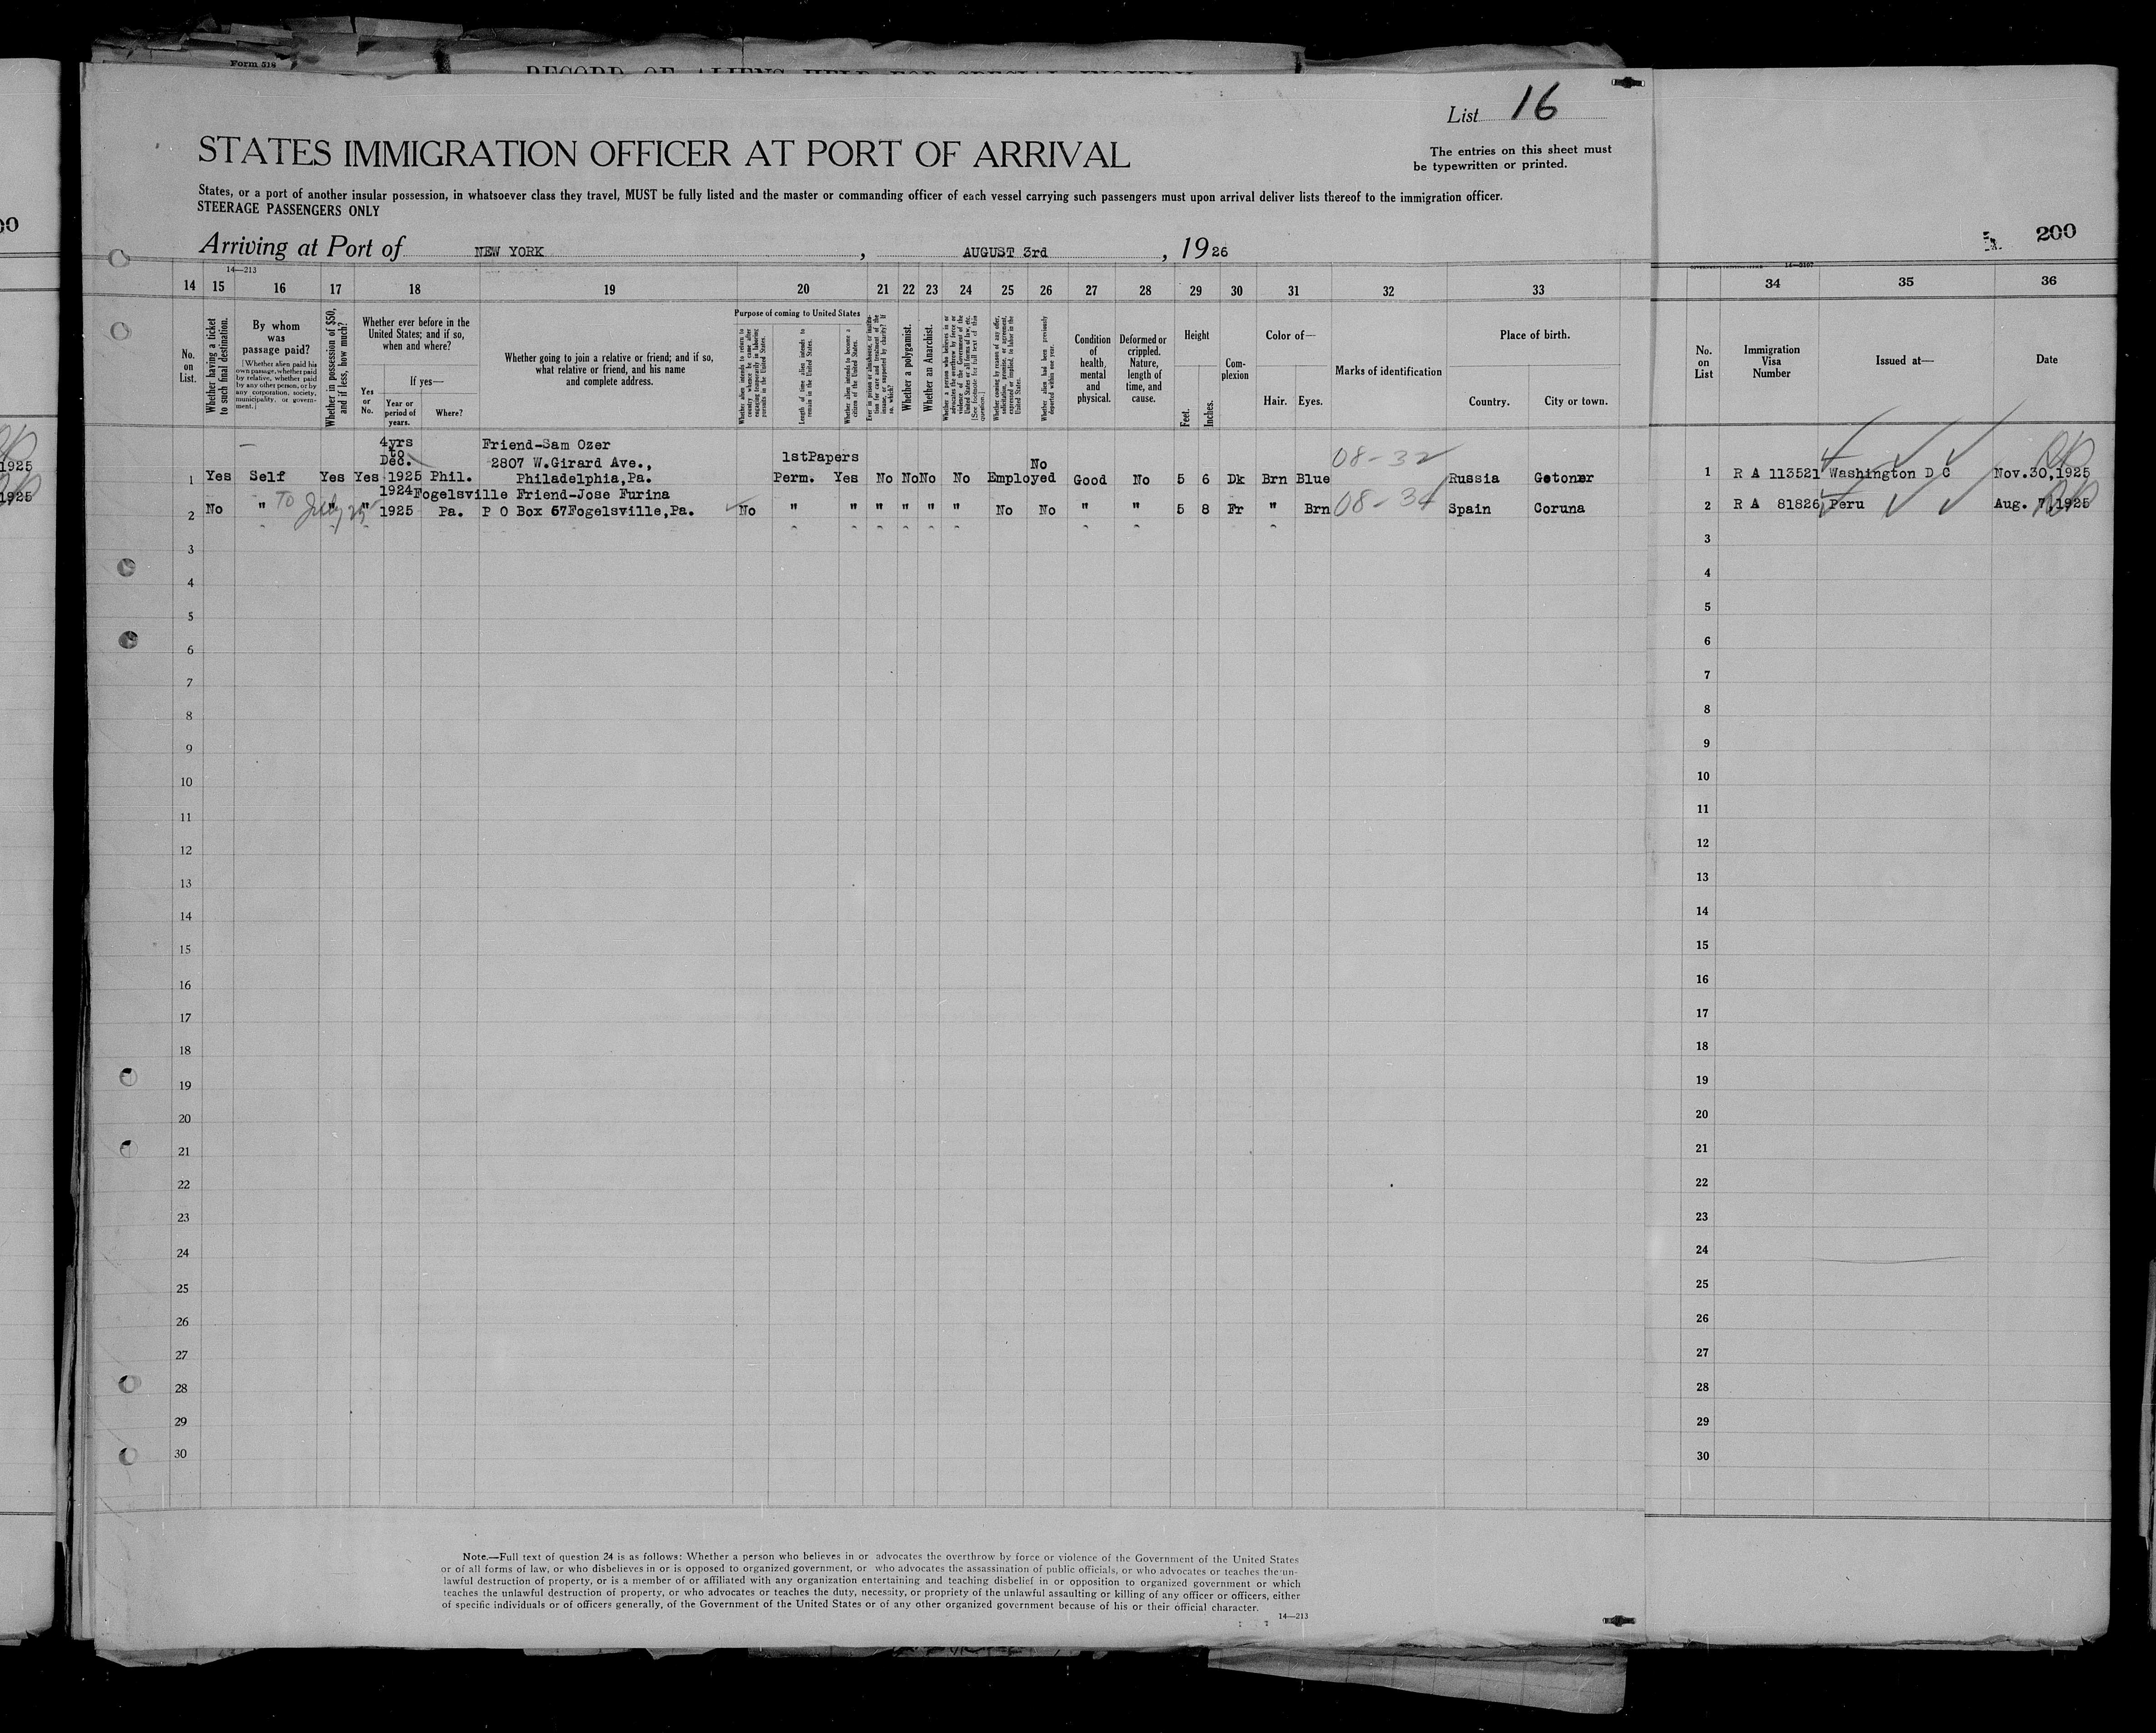 Form 518
RECORD OF ALIENS HELD FOR SPECIAL INQUIRY
List 16
STATES IMMIGRATION OFFICER AT PORT OF ARRIVAL
The entries on this sheet must
be typewritten or printed.
States, or a port of another insular possession, in whatsoever class they travel, MUST be fully listed and the master or commanding officer of each vessel carrying such passengers must upon arrival deliver lists thereof to the immigration officer.
STEERAGE PASSENGERS ONLY
200
Arriving at Port of NEW YORK, AUGUST 3rd, 1926
14—213
14 15 16 17 18 19 20 21 22 23 24 25 26 27 28 29 30 31 32 33 34 35 36
No. on List.
Whether having a ticket to such final destination.
By whom was passage paid?
[Whether alien paid his own passage, whether paid by relative, whether paid by any other person, or by any corporation, society, municipality, or government.]
Whether in possession of $50, and if less, how much?
Whether ever before in the United States; and if so, when and where?
Yes or No.
If yes—
Year or period of years.
Where?
Whether going to join a relative or friend; and if so, what relative or friend, and his name and complete address.
Purpose of coming to United States
Whether alien intends to return to country whence he came after engaging temporarily in laboring pursuits in the United States.
Length of time alien intends to remain in the United States.
Whether alien intends to become a citizen of the United States.
Ever in prison or almshouse, or institution for care and treatment of the insane, or supported by charity? If so, which?
Whether a polygamist.
Whether an Anarchist.
Whether a person who believes in or advocates the overthrow by force or violence of the Government of the United States or all forms of law, etc. [See footnote for full text of this question.]
Whether coming by reason of any offer, solicitation, promise, or agreement, expressed or implied, to labor in the United States.
Whether alien had been previously deported within one year.
Condition of health, mental and physical.
Deformed or crippled. Nature, length of time, and cause.
Height
Feet. Inches.
Complexion
Color of—
Hair. Eyes.
Marks of identification
Place of birth.
Country. City or town.
No. on List
Immigration Visa Number
Issued at—
Date
4yrs Friend-Sam Ozer
to Dec. 2807 W.Girard Ave., 1stPapers No 08-32
1 Yes Self Yes Yes 1925 Phil. Philadelphia,Pa. Perm. Yes No No No No Employed Good No 5 6 Dk Brn Blue Russia 1 R A 113521 Washington D C Nov.30,1925
1924 Fogelsville Friend-Jose Furina
2 No " To July 25 " " 1925 Pa. P O Box 57 Fogelsville,Pa. No " " " " " " No No " " 5 8 Fr " Brn 08-34 Spain Coruna 2 R A 81826 Peru Aug. 7,1925
3 3
4 4
5 5
6 6
7 7
8 8
9 9
10 10
11 11
12 12
13 13
14 14
15 15
16 16
17 17
18 18
19 19
20 20
21 21
22 22
23 23
24 24
25 25
26 26
27 27
28 28
29 29
30 30
Note.—Full text of question 24 is as follows: Whether a person who believes in or advocates the overthrow by force or violence of the Government of the United States
or of all forms of law, or who disbelieves in or is opposed to organized government, or who advocates the assassination of public officials, or who advocates or teaches the un-
lawful destruction of property, or is a member of or affiliated with any organization entertaining and teaching disbelief in or opposition to organized government or which
teaches the unlawful destruction of property, or who advocates or teaches the duty, necessity, or propriety of the unlawful assaulting or killing of any officer or officers, either
of specific individuals or of officers generally, of the Government of the United States or of any other organized government because of his or their official character.
14—213